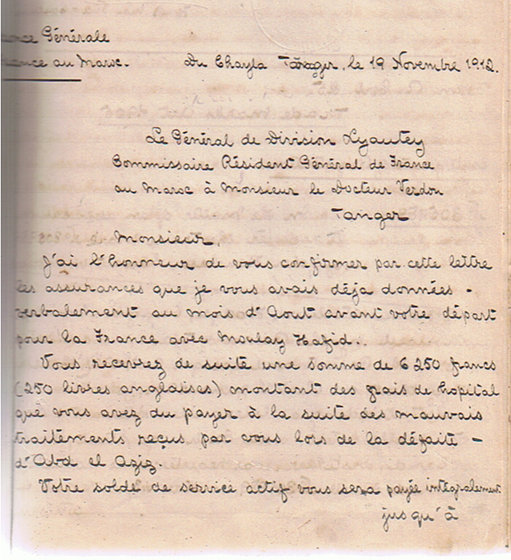 ance Générale
rance au Maroc.
Du Chayla Tanger, le 19 Novembre 1912.
Le Général de Division Lyautey
Commissaire Résident Général de France
au Maroc à Monsieur le Docteur Verdon
Tanger
Monsieur,
J'ai l'honneur de vous confirmer par cette lettre
les assurances que je vous avais déja données -
verbalement au mois d'Aout avant votre départ
pour la France avec Moulay Hafid.
Vous recevrez de suite une somme de 6 250 francs
(250 livres anglaises) montant des frais de hopital
que vous avez du payer à la suite des mauvais
traitements reçus par vous lors de la défaite -
d'Abd el Aziz.
Votre solde de service actif vous sera payée intégralement
jusqu'à